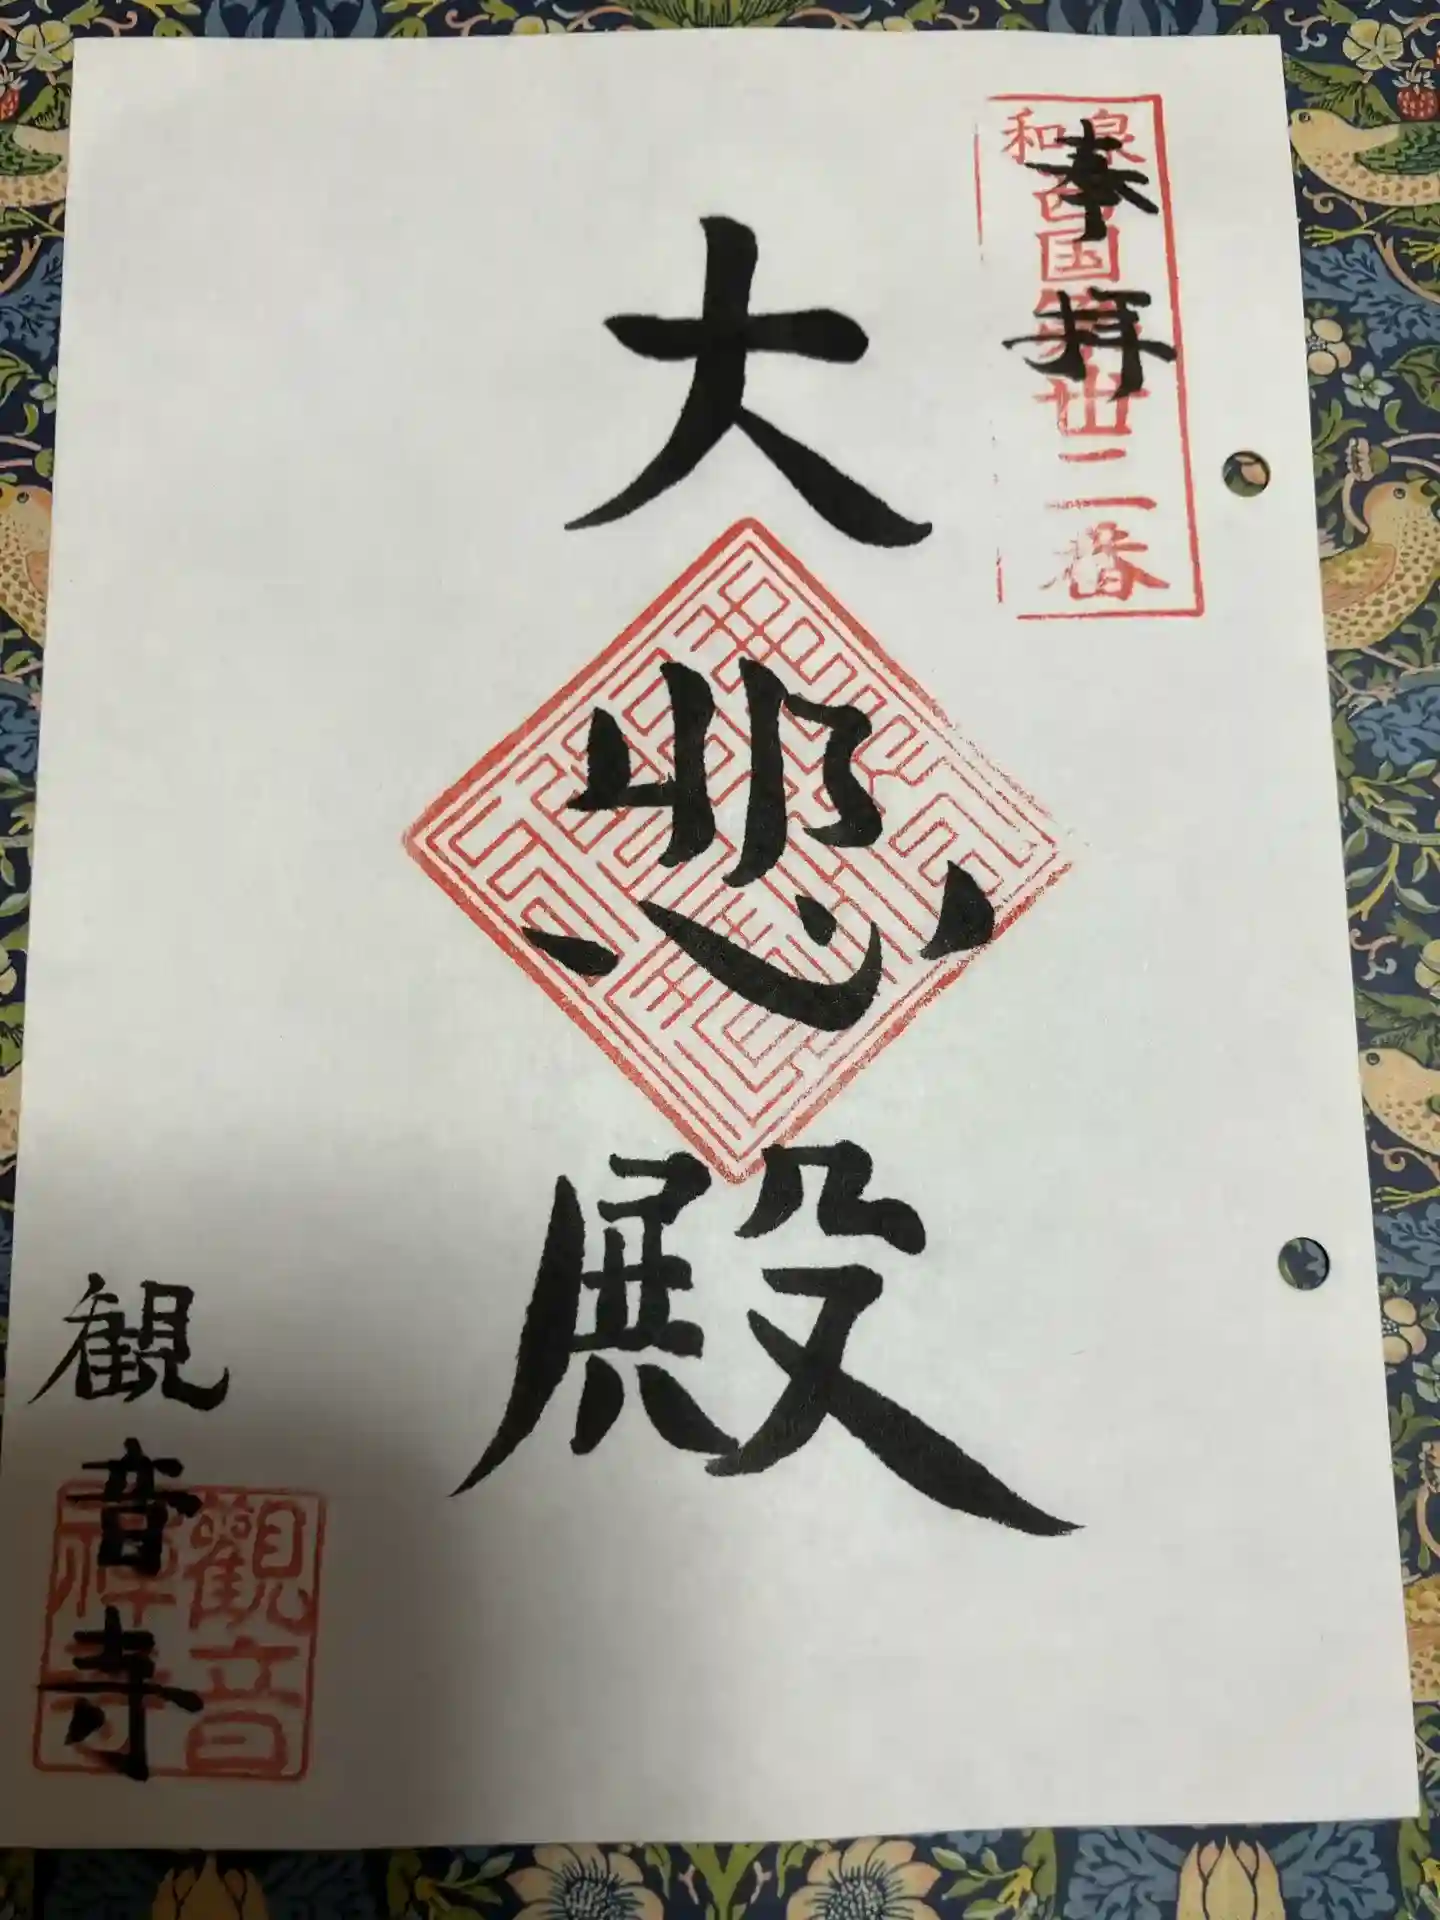 奉拝
和泉
西国第卅二番
大悲殿
観音寺
觀音
禅寺